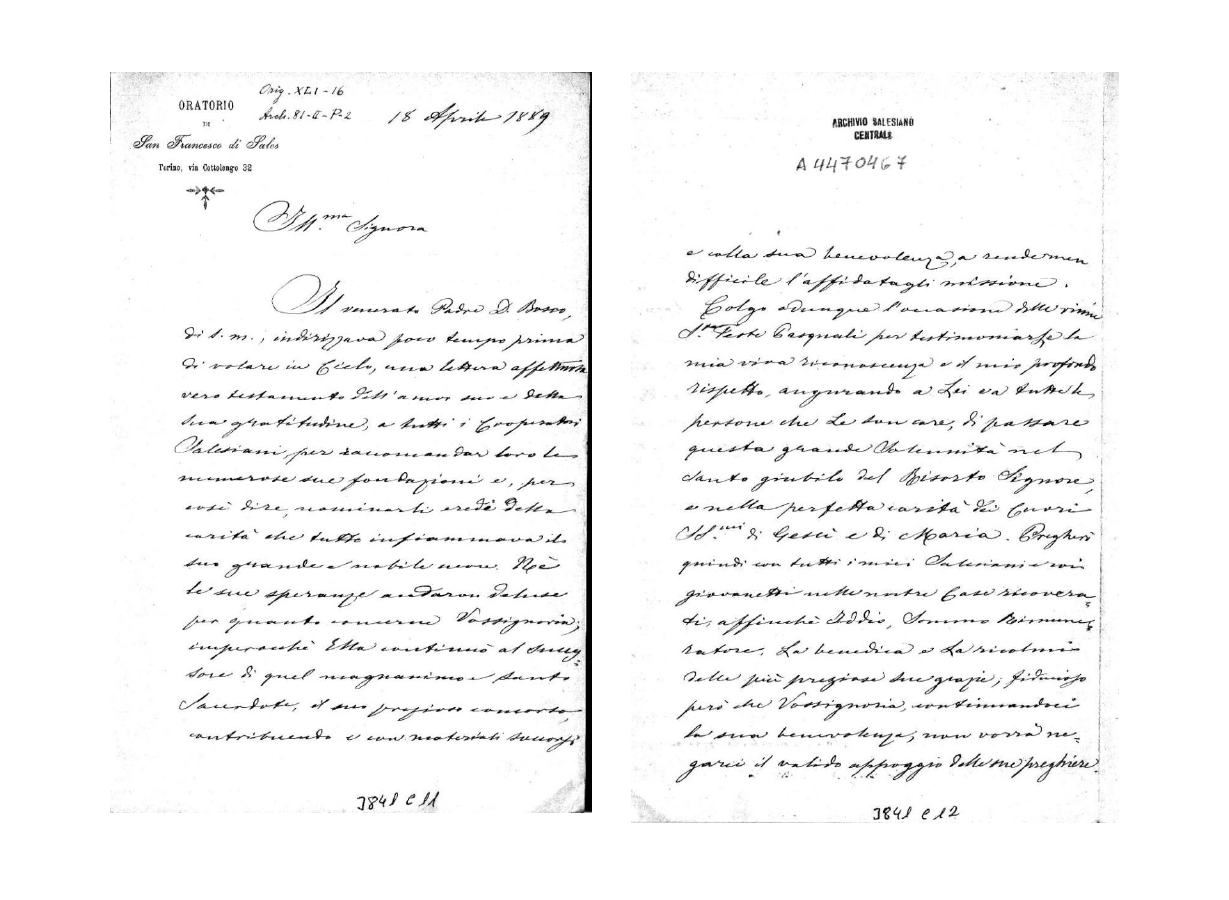 Orig. XLI-16
ORATORIO
DI
Arch. 81-II-P-2
18 Aprile 1889
San Francesco di Sales
Torino, via Cottolengo 32
Ill.ma Signora
Il venerato Padre D. Bosco,
di s. m., indirizzava poco tempo prima
di volare in Cielo, una lettera affettuosa
vero testamento dell'amor suo e della
sua gratitudine, a tutti i Cooperatori
Salesiani, per raccomandar loro le
numerose sue fondazioni e, per
così dire, nominarli eredi della
carità che tutto infiammava il
suo grande e nobile cuore. Nè
le sue speranze andaron deluse
per quanto concerne Vossignoria;
imperocchè Ella continuò al Succes=
sore di quel magnanimo e santo
Sacerdote, il suo prezioso concorso,
contribuendo e con materiali soccorsi
3841 C 11
ARCHIVIO SALESIANO
CENTRALE
A4470467
e colla sua benevolenza, a render men
difficile l'affidatagli missione.
Colgo adunque l'occasione delle
S.te Feste Pasquali per testimoniarle la
mia viva riconoscenza e il mio profondo
rispetto, augurando a Lei ea tutte le
persone che Le son care, di passare
questa grande Solennità nel
Santo giubilo del Risorto Signore,
e nella perfetta carità dei Cuori
SS.mi di Gesù e di Maria. Pregherò
quindi con tutti i miei Salesiani e coi
giovanetti nelle nostre Case ricovera=
ti, affinchè Iddio, Sommo Rimune=
ratore, La benedica e La ricolmi
delle più preziose sue grazie; fiducioso
però che Vossignoria, continuandoci
la sua benevolenza, non vorrà ne=
garci il valido appoggio delle sue preghiere.
3841 C 12